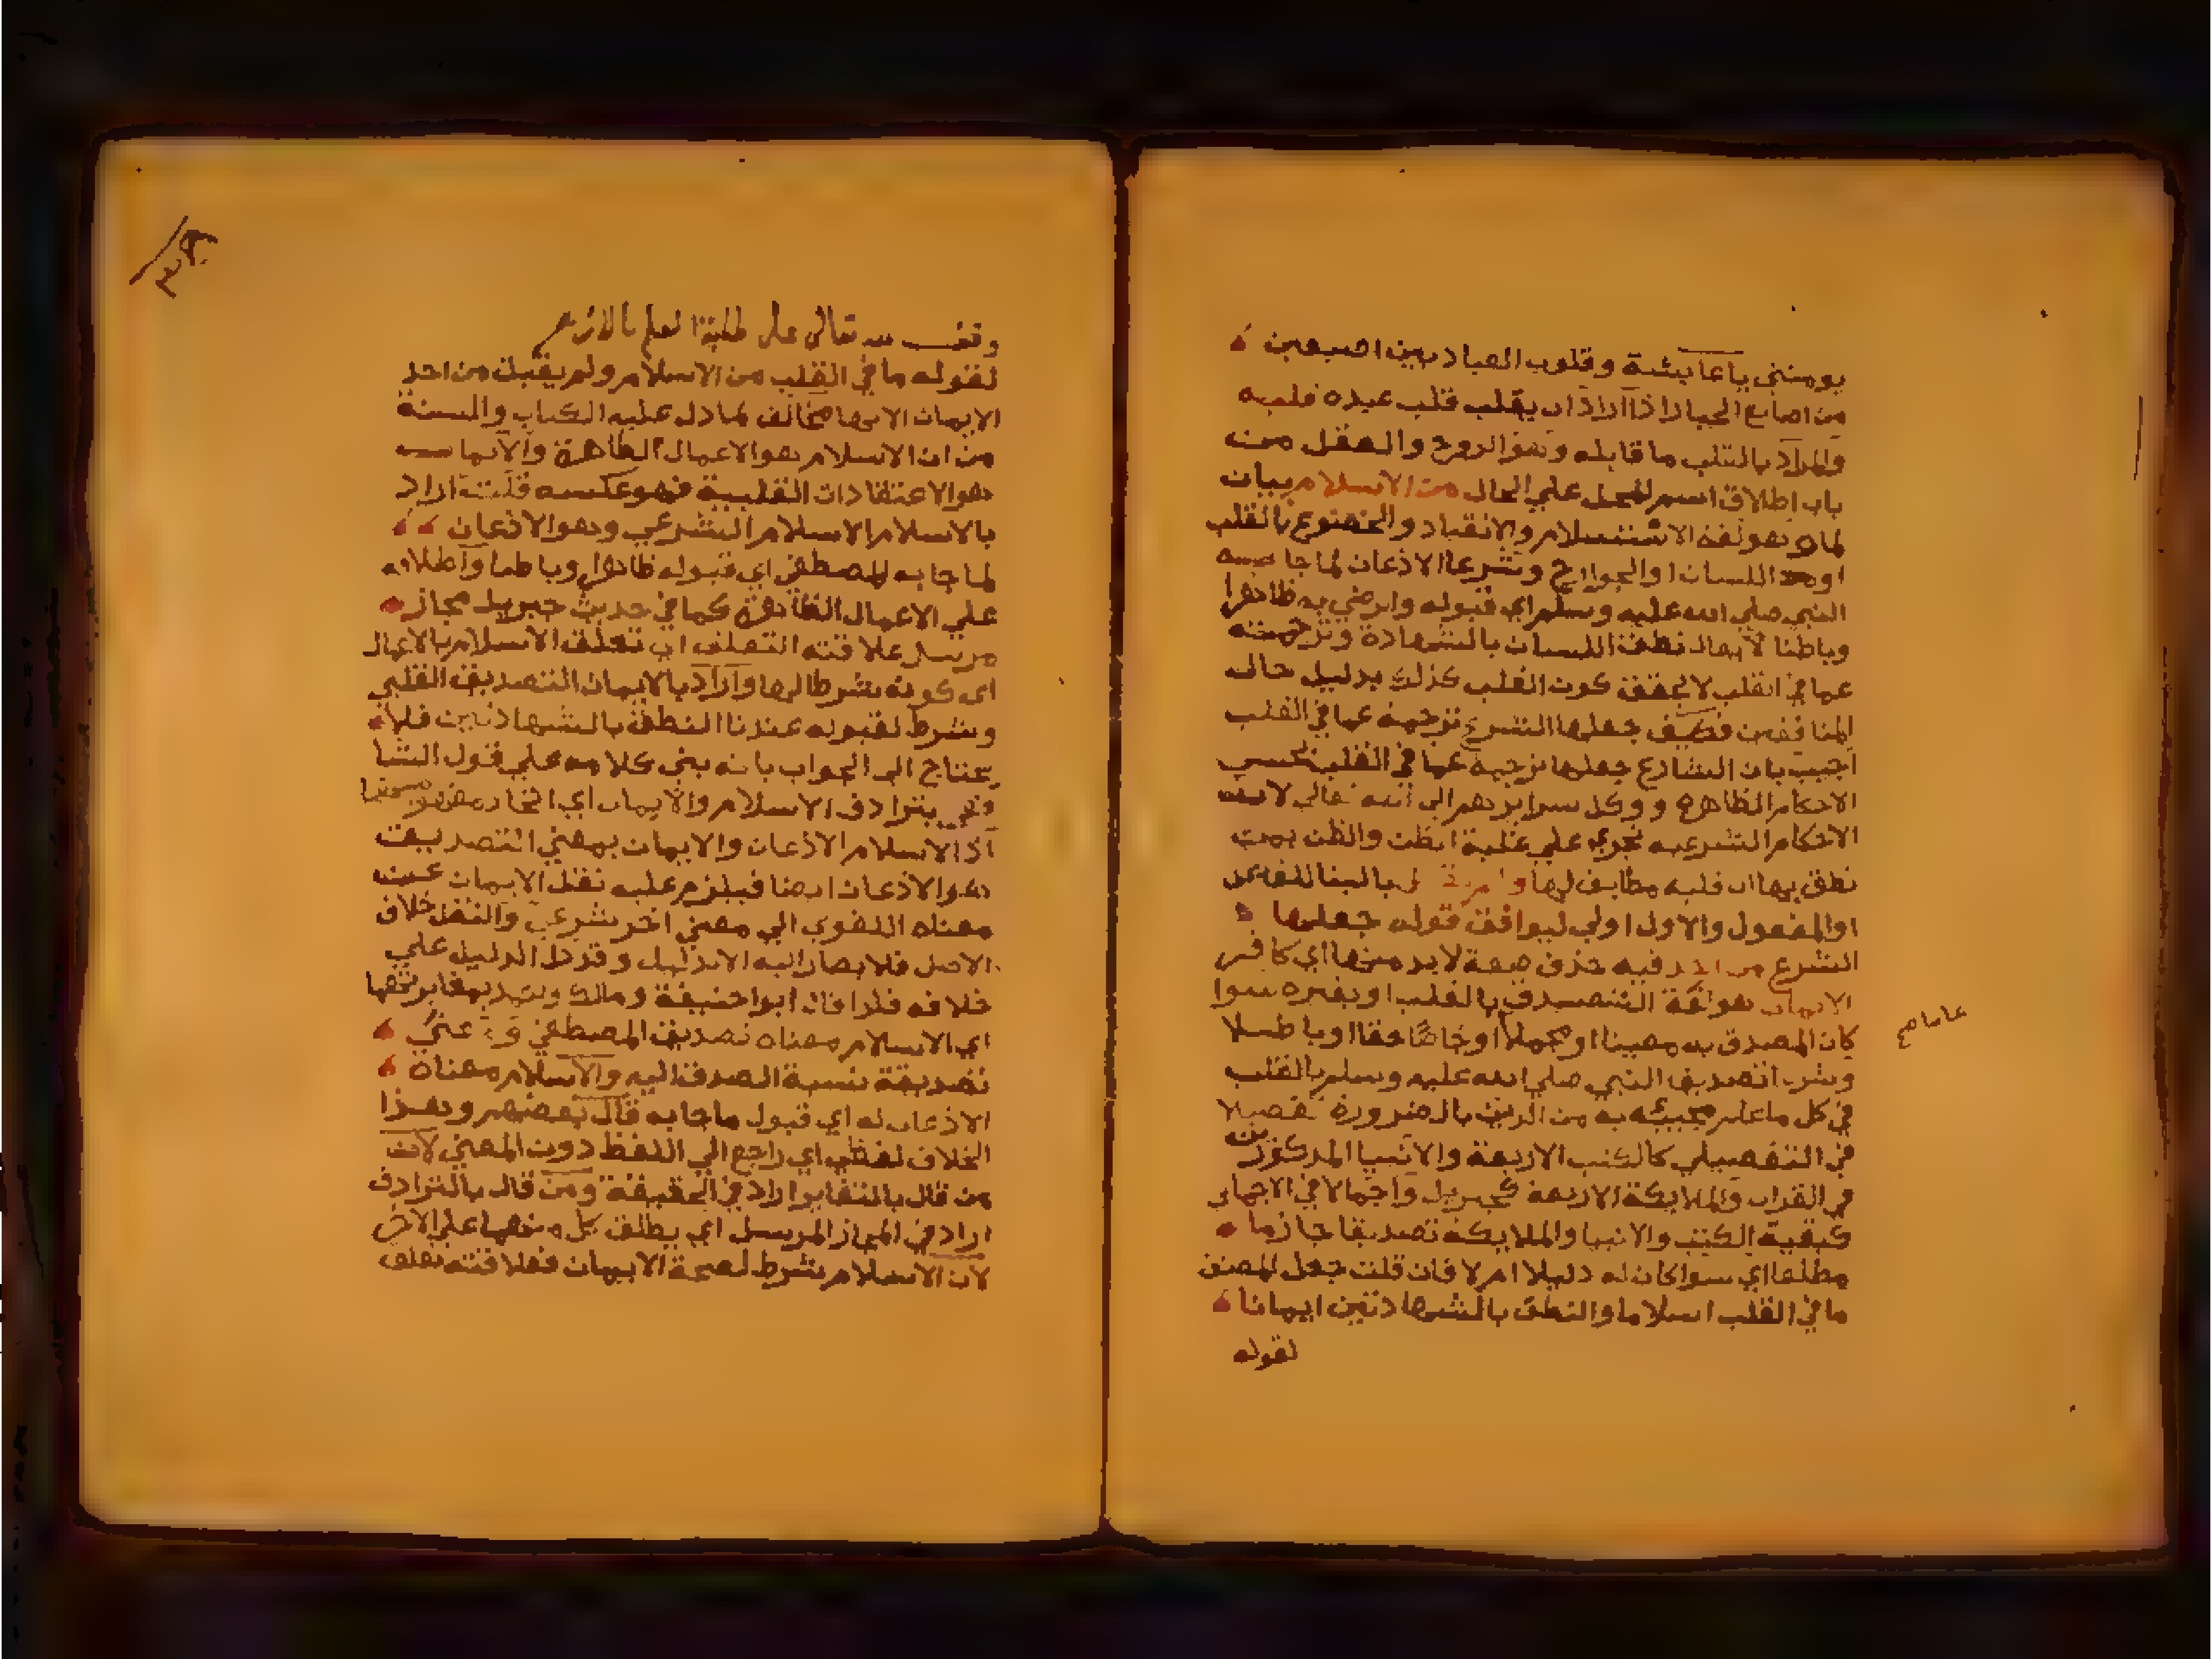 يومنني ياعايشة وقلوب العباد بين اصبعين
من اصابع الجبار اذا اراد ان يقلب قلب عبده قلبه
والمراد بالقلب ما قابله وهو الروح والعقل من
باب اطلاق اسم المحل علي الحال من الاسلام بيان
لما وهو لغة الاستسلام والانقياد والخضوع بالقلب
او اللسان او الجوارح وشرعا الاذعان لما جا به
النبي صلي الله عليه وسلم اي قبوله والرضي به ظاهرا
وباطنا لايقال نطق اللسان بالشهادة وترجمته
عما في القلب لا يحقق كون القلب كذلك بدليل حال
المنافقين فكيف جعلها الشرع ترجمة عما في القلب
اجيب بان الشارع جعلها ترجمة عما في القلب بحسب
الاحكام الظاهرة ووكل سرايرهم الي الله تعالي لان
الاحكام الشرعيه تجري علي غلبة الظن والظن بمن
نطق بها ان قلبه مطابق لها ولم يقبل بالبنا للفاعل
او المفعول والاول اولي ليوافق قوله جعلها
الشرع من احد فيه حذف صفة لابد منها اي كافر
الايمان هو لغة التصديق بالقلب او بغيره سوا
كان المصدق به معينا او مجملا او خاصا حقا او باطلا
عاما صح
وشرعا تصديق النبي صلي الله عليه وسلم بالقلب
في كل ما علم مجيئه به من الدين بالضرورة تفصيلا
في التفصيلي كالكتب الاربعة والانبيا المذكورين
في القران والملايكة الاربعة كجبريل واجمالا في الاجمالي
كبقية الكتب والانبيا والملايكة تصديقا جازما
مطلقا اي سوا كان له دليلا ام لا فان قلت جعل المصنف
ما في القلب اسلاما والنطق بالشهادتين ايمانا
لقوله
وقف لله تعالي علي طلبة العلم بالازهر
لقوله ما في القلب من الاسلام ولم يقبل من احد
الايمان الا بها مخالف لما دل عليه الكتاب والسنة
من ان الاسلام هو الاعمال الظاهرة والايمان
هو الاعتقادات القلبية فهو عكسه قلت اراد
بالاسلام الاسلام الشرعي وهو الاذعان
لما جا به المصطفي اي قبوله ظاهرا وباطنا واطلاقه
علي الاعمال الظاهرة كما في حديث جبريل مجاز
مرسل علاقته التعلق اي تعلق الاسلام بالاعمال
اي كونه شرطا لها واراد بالايمان التصديق القلبي
وشرط لقبوله عندنا النطق بالشهادتين فلا
يحتاج الي الجواب بانه بني كلامه علي قول الشا
فعي بترادف الاسلام والايمان اي اتحاد مفهوميهما
اذ الاسلام الاذعان والايمان بمعني التصديق
هو الاذعان ايضا فيلزم عليه نقل الايمان عن
معناه اللغوي الي معني اخر شرعي والنقل خلاف
الاصل فلا يصار اليه الا بدليل وقد دل الدليل علي
خلافه فلذا قال ابو احنيفة ومالك وغيره بتغايرهما
اي الاسلام معناه تصديق المصطفي ومعني
تصديقة نسبة الصدق اليه والاسلام معناه
الاذعان له اي قبول ما جا به قال بعضهم وهذا
الخلاف لفظي اي راجع الي اللفظ دون المعني لان
من قال بالتغاير اراد في الحقيقة ومن قال بالترادف
اراد في المجاز المرسل اي يطلق كل منهما علي الاخر
لان الاسلام شرط لصحة الايمان فعلاقته تعلق